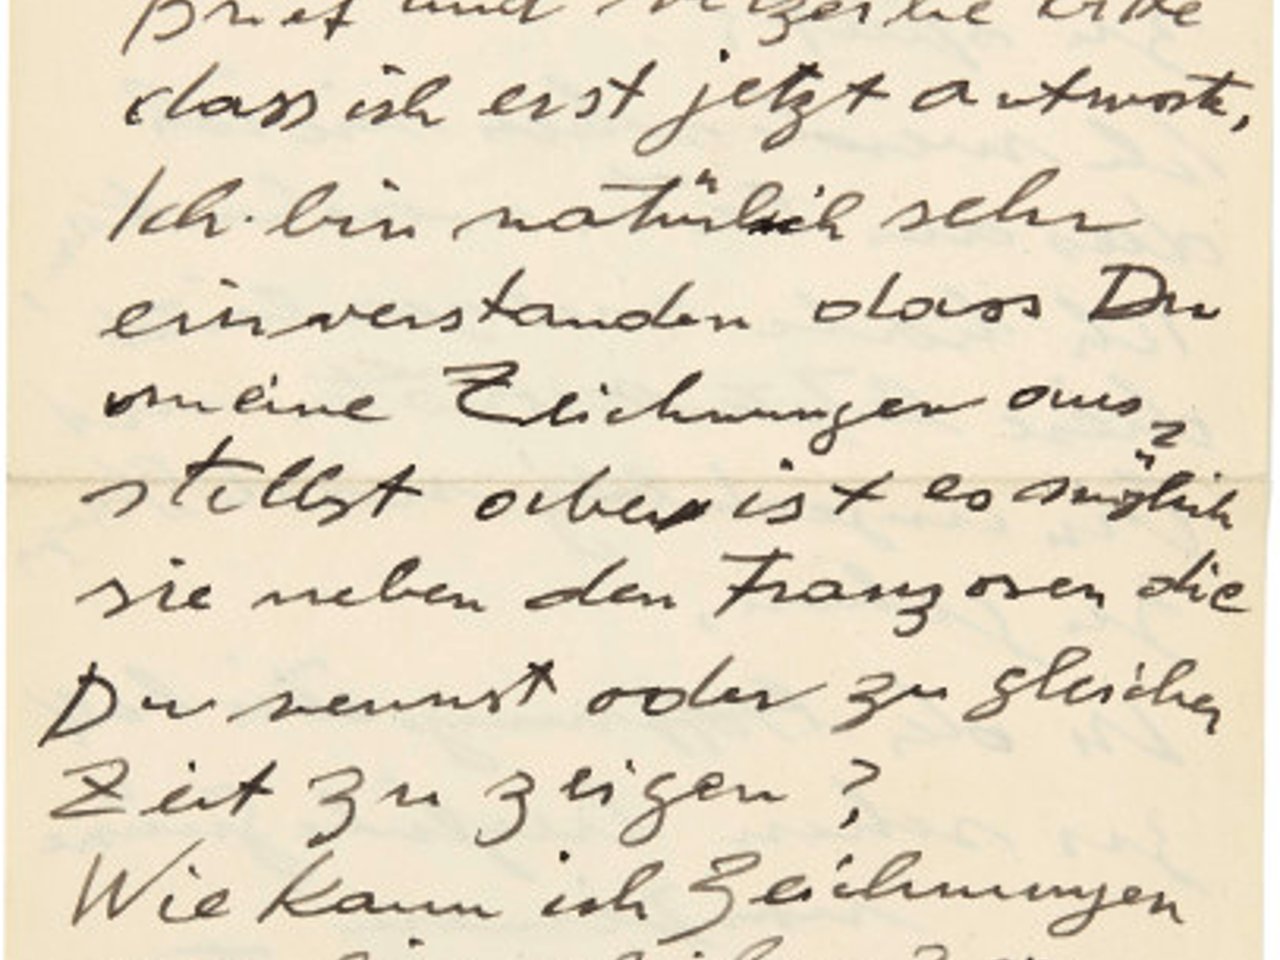 Brief und verzeihe bitte
dass ich erst jetzt antworte,
Ich bin natürlich sehr
einverstanden dass Du
meine Zeichnungen aus-
stellst aber ist es möglich
sie neben den Franzosen die
Du nennst oder zu gleicher
Zeit zu zeigen?
Wie kann ich Zeichnungen